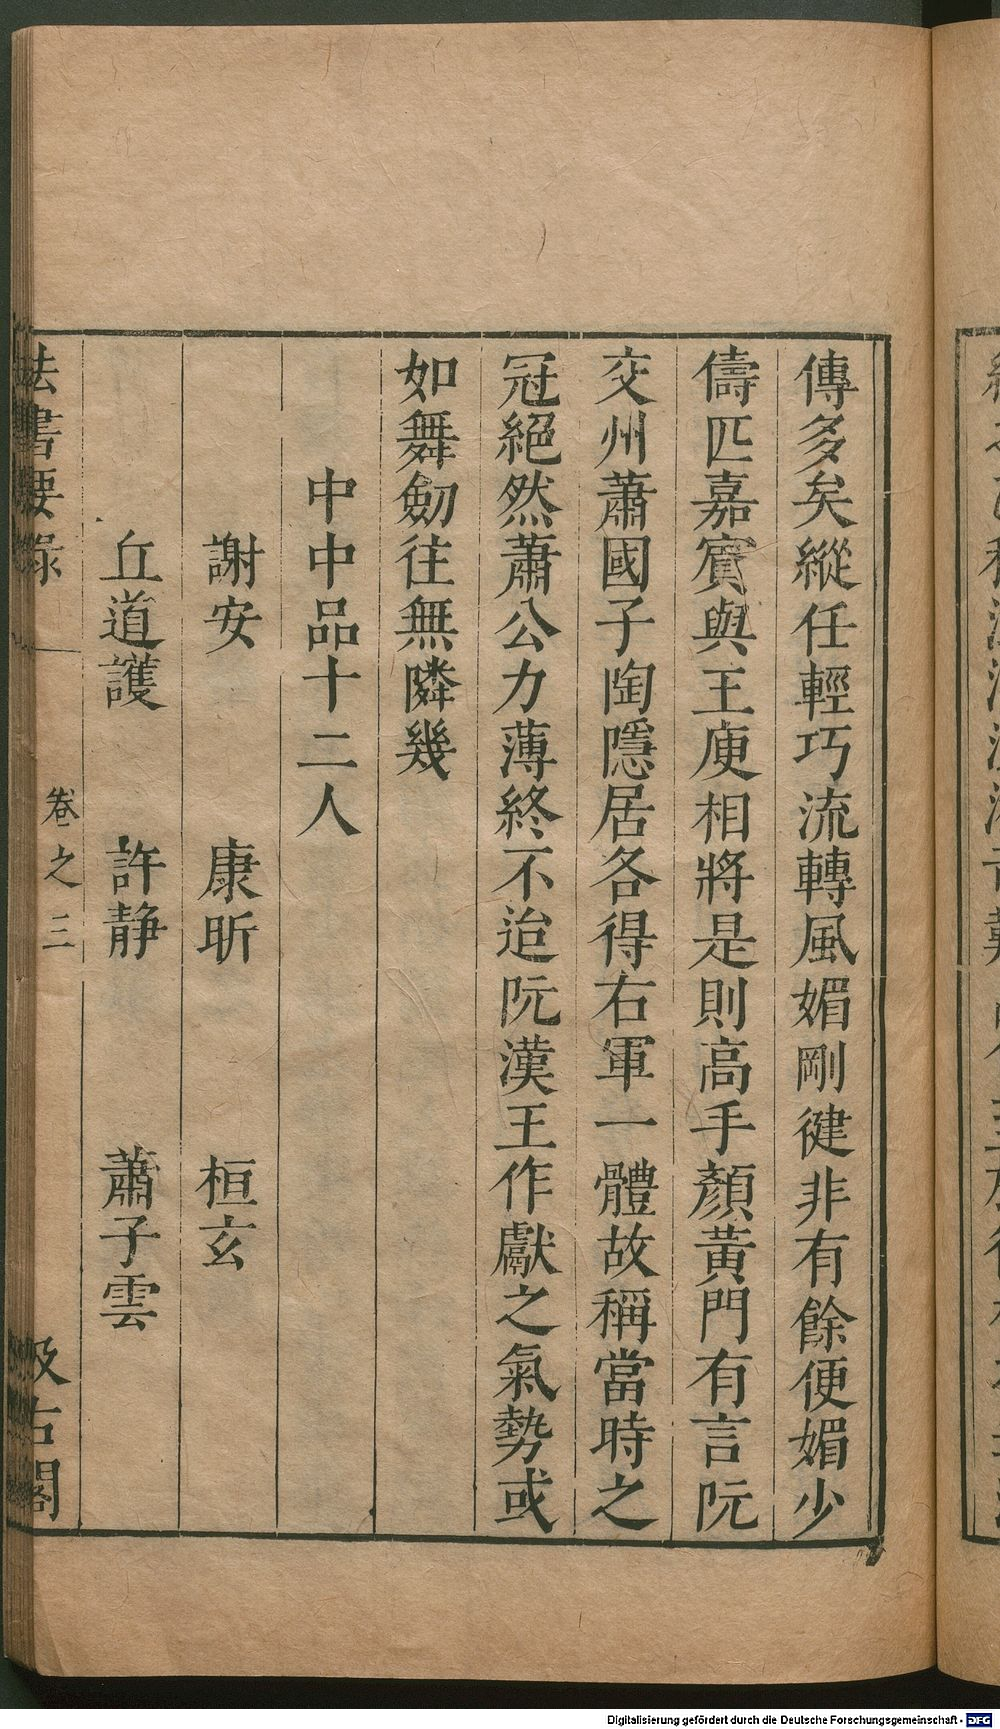 傳多矣縱任輕巧流轉風媚剛健非有餘便媚少
儔匹嘉賓與王庾相將是則高手顏黃門有言阮
交州蕭國子陶隱居各得右軍一體故稱當時之
冠絕然蕭公力薄終不迨阮漢王作獻之氣勢或
如舞劒往無隣幾
中中品十二人
謝安 康昕 桓玄
丘道護 許靜 蕭子雲
法書要錄 卷之三 汲古閣
Digitalisierung gefördert durch die Deutsche Forschungsgemeinschaft - DFG